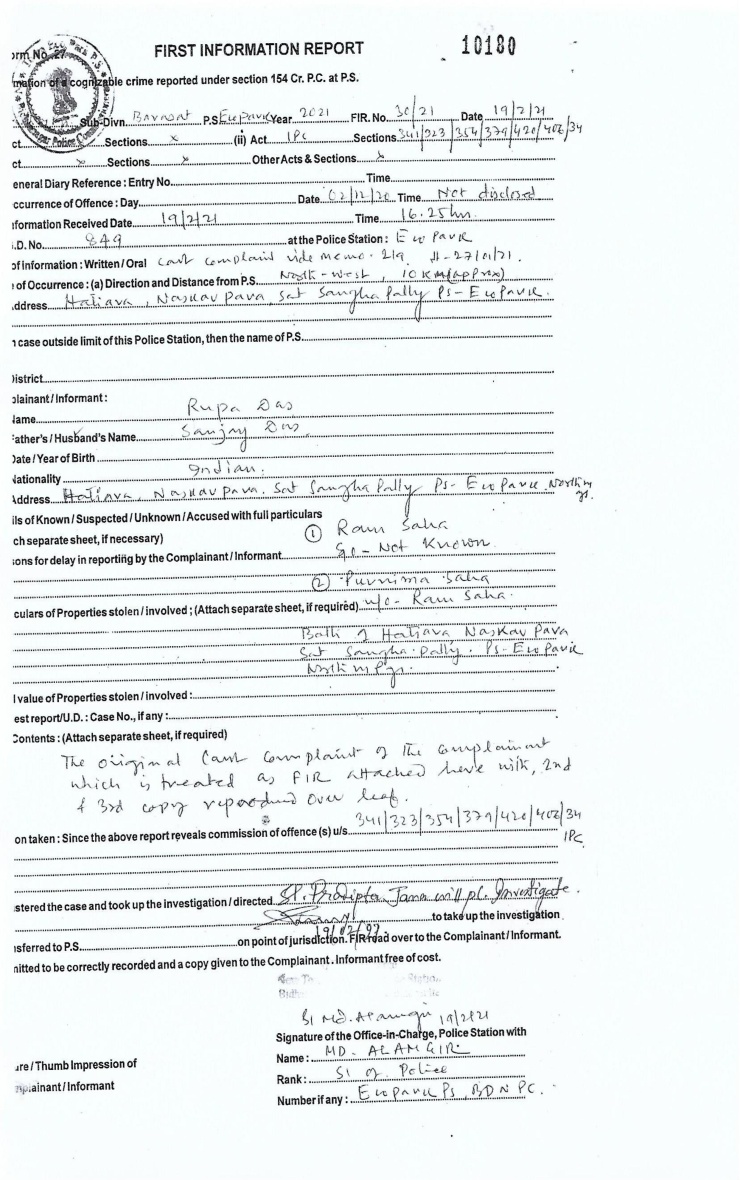 orm No. 27
FIRST INFORMATION REPORT
10180
mation of a cognizable crime reported under section 154 Cr. P.C. at P.S.
Sub-Divn. Barasat P.S Eco Park Year 2021 FIR. No. 30/21 Date 19/2/21
ct Sections x (ii) Act IPC Sections 341/323/354/379/420/406/34
ct x Sections x Other Acts & Sections x
eneral Diary Reference : Entry No. Time
ccurrence of Offence : Day Date 02/12/20 Time Not disclosed
nformation Received Date 19/2/21 Time 16.25 hrs.
.D. No. 849 at the Police Station : Eco Park
of Information : Written / Oral Court complaint vide memo. 219 dt- 27/01/21.
of Occurrence : (a) Direction and Distance from P.S. North-West, 10 KM (approx)
ddress Hatiara, Naskar Para, Sat Sangha Pally PS- Eco Park.
n case outside limit of this Police Station, then the name of P.S.
District
plainant / Informant :
Name Rupa Das
Father's / Husband's Name Sanjay Das
Date / Year of Birth
Nationality Indian.
Address Hatiara, Naskar Para. Sat Sangha Pally PS- Eco Park North
ils of Known / Suspected / Unknown / Accused with full particulars
ch separate sheet, if necessary)
① Ram Saha
sons for delay in reporting by the Complainant / Informant S/o - Not Known
② Purnima Saha
culars of Properties stolen / involved ; (Attach separate sheet, if required) w/o - Ram Saha.
Both of Hatiara Naskar Para
Sat Sangha Pally. PS- Eco Park
l value of Properties stolen / involved :
est report/U.D. : Case No., if any :
Contents : (Attach separate sheet, if required)
The original Court complaint of the complainant
which is treated as FIR attached here with, 2nd
& 3rd copy reproduced over leaf.
on taken : Since the above report reveals commission of offence (s) u/s 341/323/354/379/420/406/34
IPC
stered the case and took up the investigation / directed SI. Pradipta Jana will pl. Investigate.
to take up the investigation
nsferred to P.S. on point of jurisdiction. FIR read over to the Complainant / Informant.
mitted to be correctly recorded and a copy given to the Complainant . Informant free of cost.
SI Md. Alamgir 19/2/21
Signature of the Office-in-Charge, Police Station with
Name : MD. ALAMGIR
ure / Thumb Impression of
Rank : SI of Police
plainant / Informant
Number if any : Eco Park PS, BDNPC.